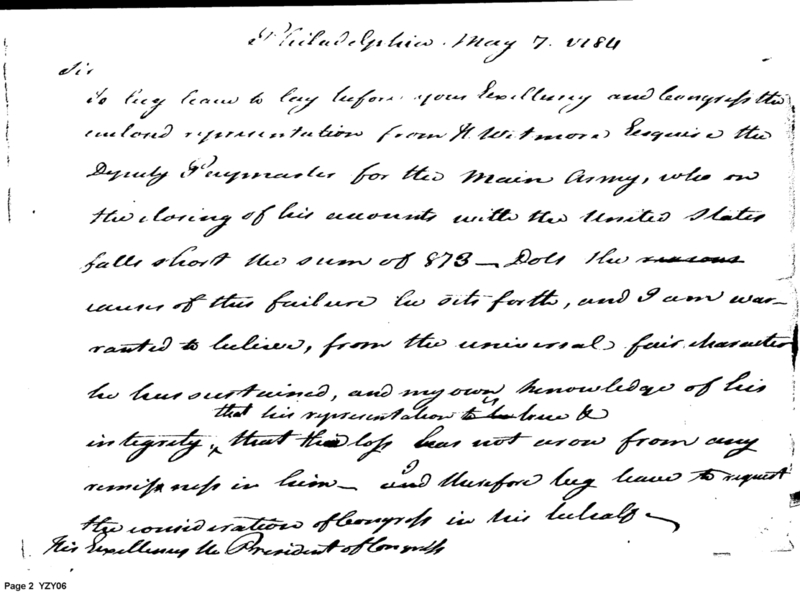 Philadelphia. May 7. 1784
Sir
To beg leave to lay before your Excellency and Congress the
enclosed representation from H. Wetmore Esquire the
Deputy Paymaster for the Main Army, who on
the closing of his accounts with the United States
falls short the sum of 873 — Dols the reasons
causes of this failure he sets forth, and I am war-
ranted to believe, from the universal fair character
he has sustained, and my own knowledge of his
that his representation is true &
integrity, that the loss has not arose from any
remissness in him — and therefore beg leave to request
the consideration of Congress in his behalf —
His Excellency the President of Congress
Page 2 YZY06